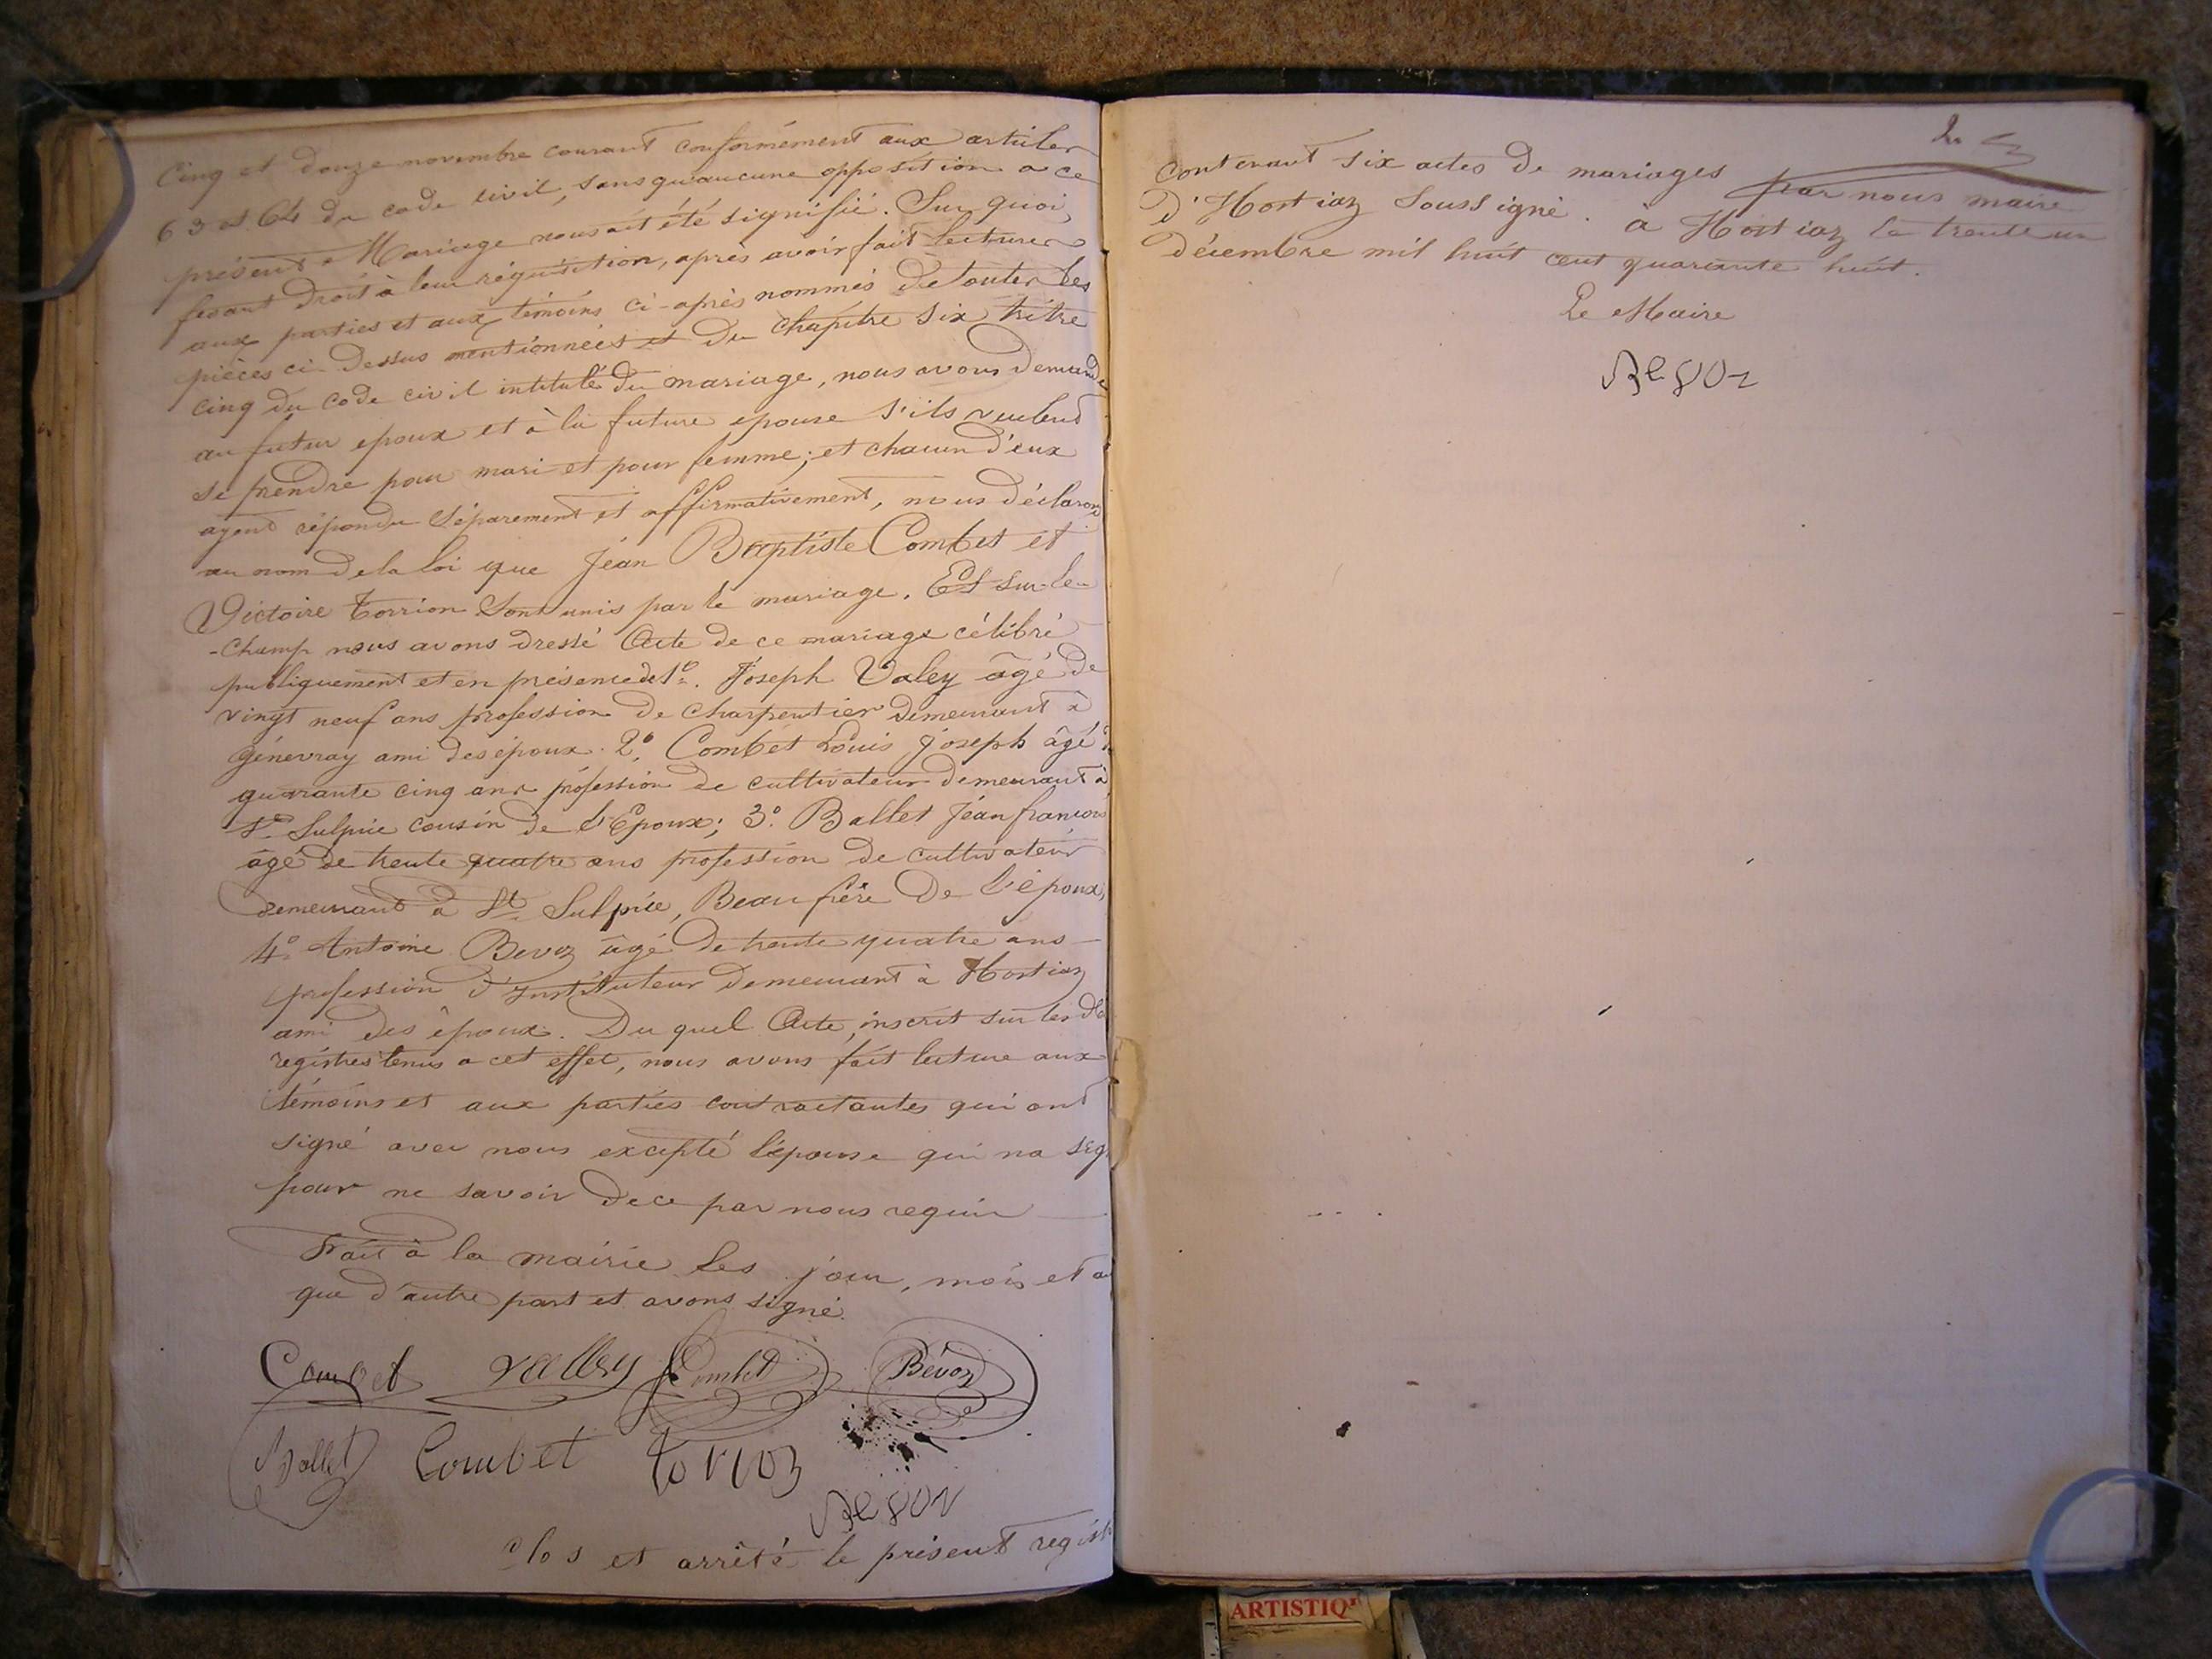 Cinq et douze novembre courant conformément aux articles
63 et 64 du code civil, sans qu'aucune opposition a ce
présent Mariage nous ait été signifié. Sur quoi,
fesant droit à leur réquisition, après avoir fait lecture
aux parties et aux témoins ci-après nommés de toutes les
pièces ci-dessus mentionnées et du chapitre six titre
cinq du code civil intitulé du mariage, nous avons demandé
au futur epoux et à la future epouse s'ils veulent
se prendre pour mari et pour femme; et chacun d'eux
ayant répondu séparement et affirmativement, nous déclarons
au nom de la loi que Jéan Baptiste Combet et
Victoire Torrion sont unis par le mariage. Et sur-le-
-champ nous avons dressé Acte de ce mariage célébré
publiquement et en présence de 1º. Joseph Valey âgé de
vingt neuf ans profession de charpentier demeurant à
Génevray ami des époux. 2º. Combet Louis Joseph âgé de
quarante cinq ans profession de cultivateur demeurant à
St. Sulpice cousin de l'Epoux; 3º. Ballet Jéan françois
âgé de trente quatre ans profession de cultivateur
demeurant à St. Sulpice, Beau frére de l'époux,
4º. Antoine Bevoz âgé de trente quatre ans
profession d'instituteur demeurant à Hostiaz
ami des époux. Du quel Acte, inscrit sur les
registres tenus a cet effet, nous avons fait lecture aux
témoins et aux parties contractantes qui ont
signé avec nous excepté l'épouse qui na
pour ne savoir de ce par nous requis
Fait à la mairie les jour, mois et
que d'autre part et avons signé.
Combet valley Combet Bévoz
Ballet Combet torrion
clos et arrêté le présent regist
contenant six actes de mariages par nous maire
d'Hostiaz soussigné. à Hostiaz le trente un
décembre mil huit cent quarante huit.
Le Maire
ARTISTIQ